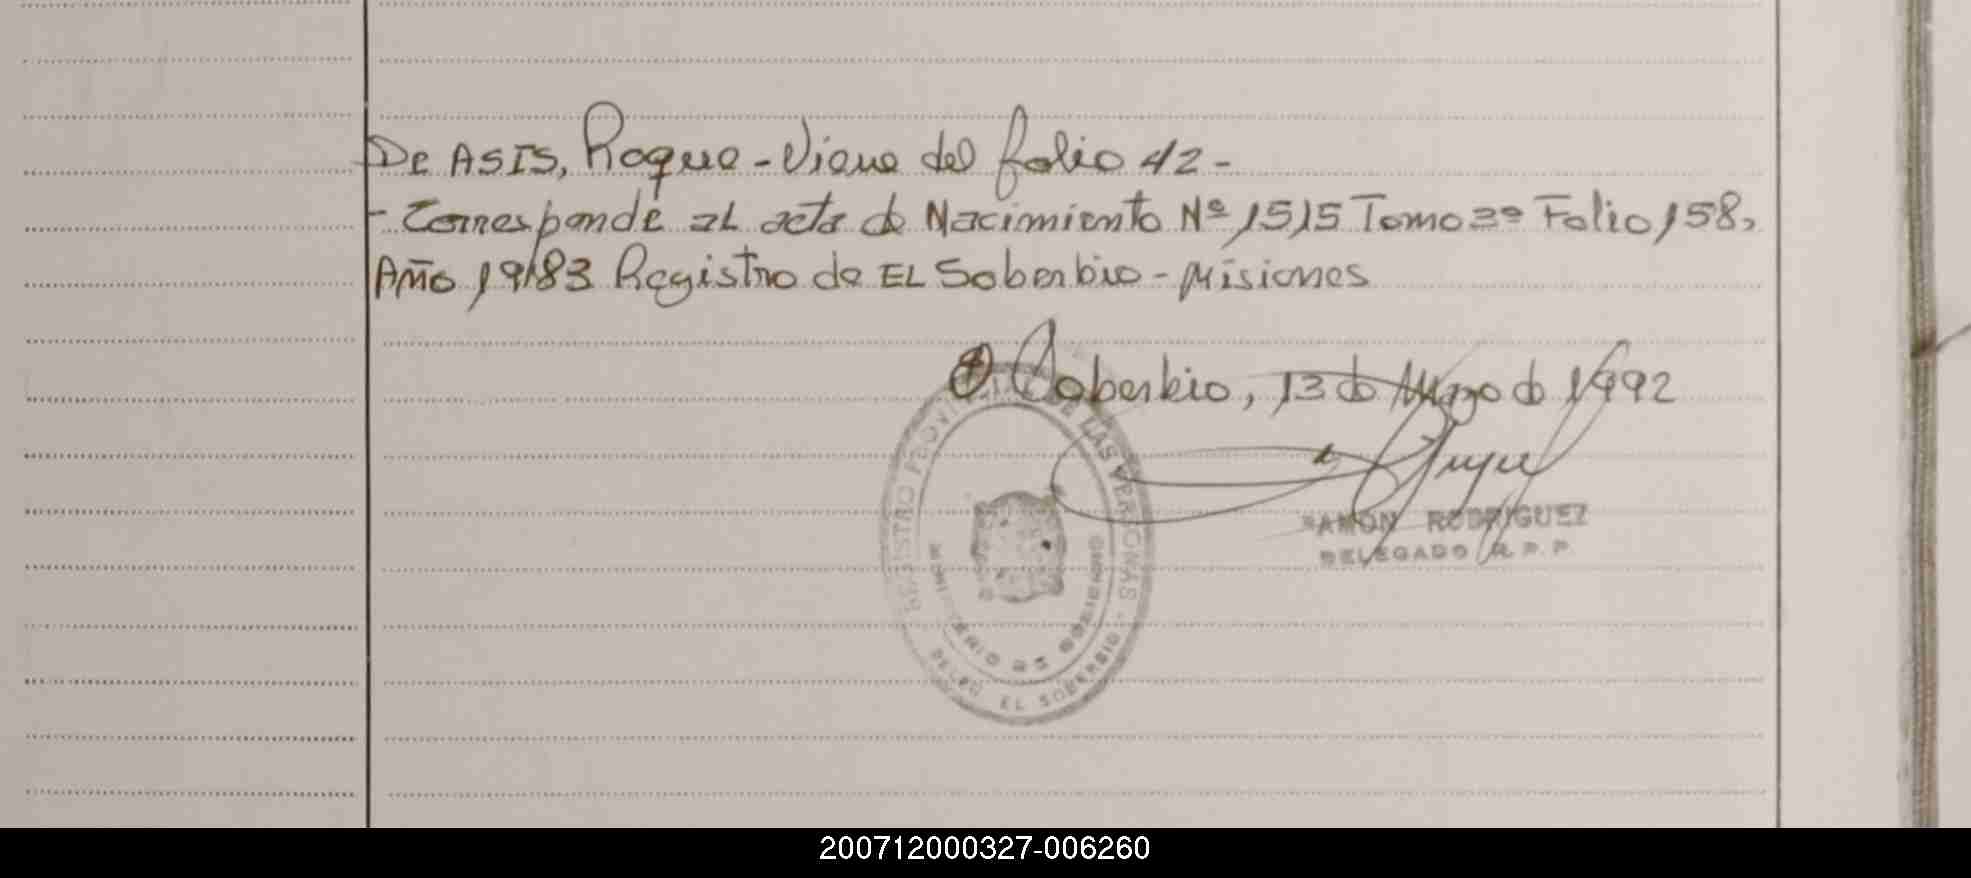 De ASIS, Roque - Viene del folio 42 -
- Corresponde al acta de Nacimiento Nº 1515 Tomo 3º Folio 158,
Año 1983 Registro de EL Soberbio - Misiones
El Soberbio, 13 de Marzo de 1992
RAMON RODRIGUEZ
DELEGADO R. P. P.
REGISTRO PROVINCIAL DE LAS PERSONAS
MINISTERIO DE GOBIERNO
DELEG. EL SOBERBIO
200712000327-006260